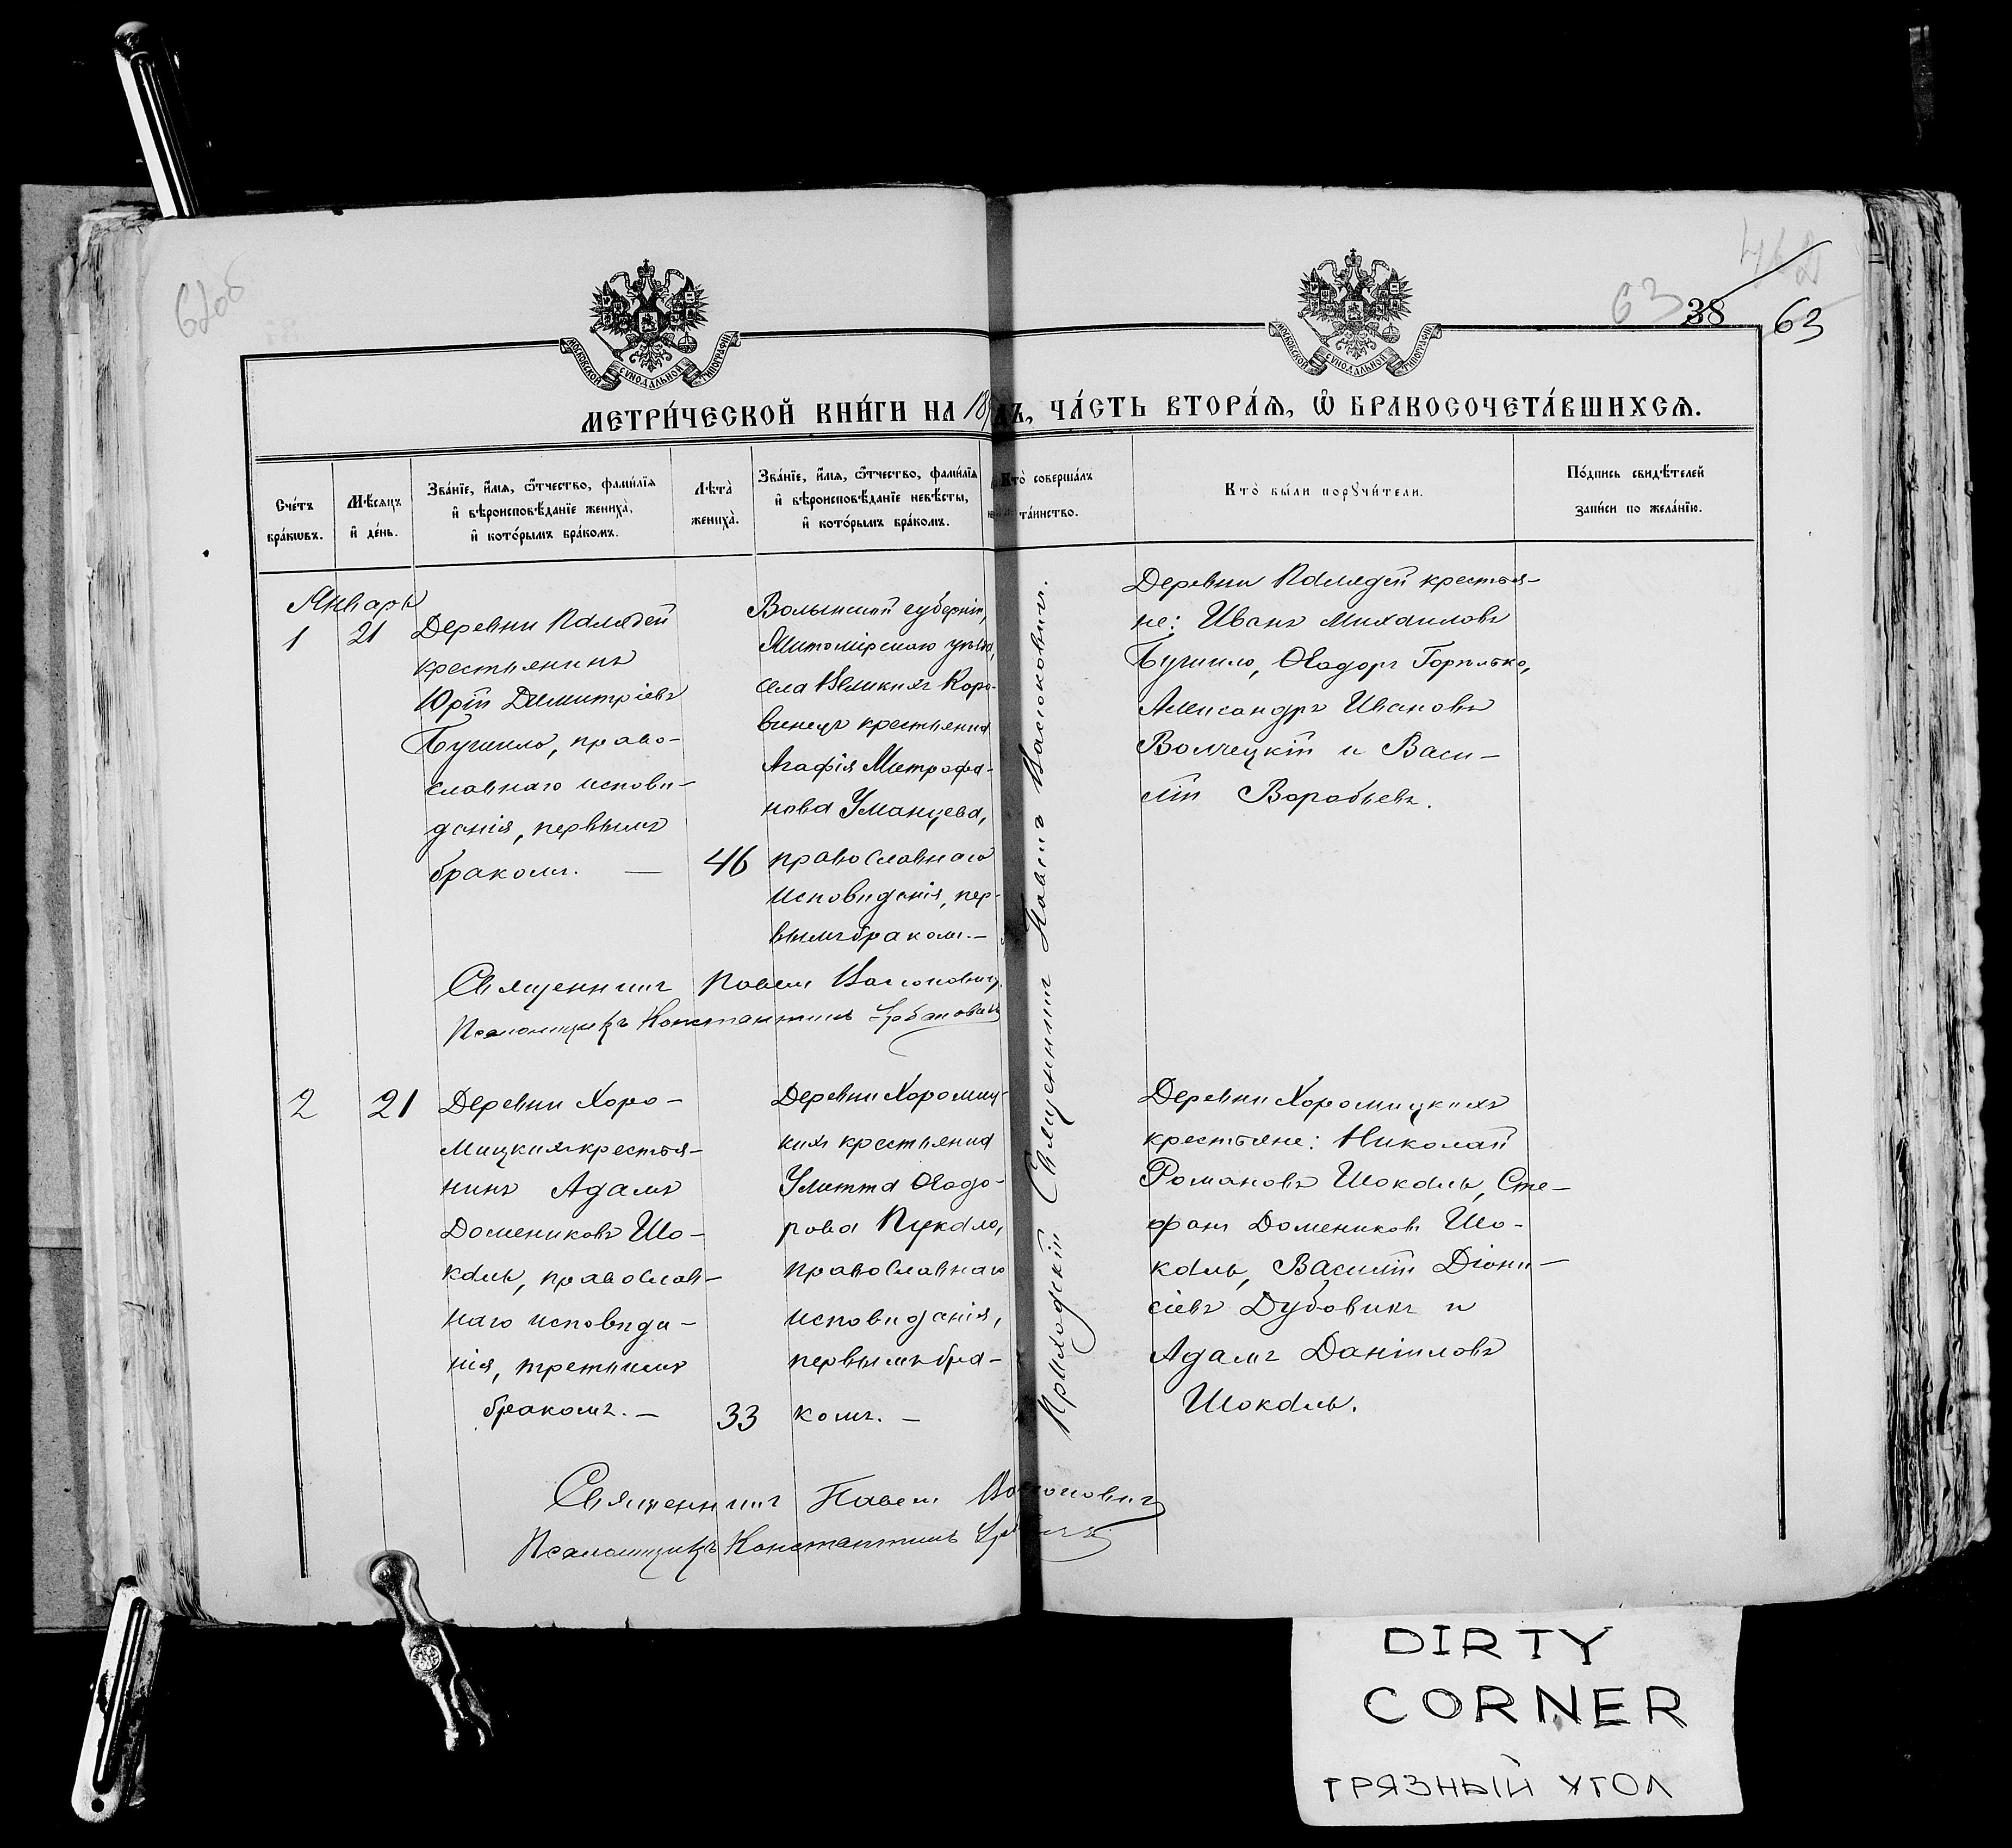 63
38
63
МЕТРИ́ЧЕСКОЙ КНИ́ГИ НА 18
ДЪ, ЧА́СТЬ ВТОРА́Ѧ, Ѽ БРАКОСОЧЕТА́ВШИХСѦ.
Сче́тъ
бра́кѡвъ.
Мѣ́сѧцъ
и҆ де́нь.
Зва́нїе, и҆́мѧ, ѻ҆́тчество, фами́лїѧ
и҆ вѣроисповѣ́данїе жениха̀,
и҆ кото́рымъ бра́комъ.
Лѣта̀
жениха̀.
Зва́нїе, и҆́мѧ, ѻ҆́тчество, фами́лїѧ
и҆ вѣроисповѣ́данїе невѣ́сты,
и҆ кото́рымъ бра́комъ.
Кто̀ соверша́лъ
та́инство.
Кто̀ бы́ли порꙋчи́тели.
По́дпись свидѣ́телей
за́писи по жела́нїю.
Январь
1
21
Деревни Паляден
крестьянинъ
Юрій Димитріевъ
Бучило, право-
славнаго исповѣ-
данія, первымъ
бракомъ. —
46
Волынской губерніи,
Житомірскаго уѣзда,
села Великихъ Коро-
винецъ крестьянка
Агафія Митрофа-
нова Уманцева,
православнаго
исповѣданія, пер-
вымъ бракомъ. —
Приходскій Священникъ Павелъ Васюковичъ.
Деревни Паляден крестья-
не: Иванъ Михаиловъ
Бучило, Ѳеодоръ Горпинко,
Александръ Ивановъ
Волчецкій и Васи-
лій Воробьевъ.
Священникъ Павелъ Васюковичъ
Псаломщикъ Константинъ Урбановичъ
2
21
Деревни Хоро-
мицкихъ крестья-
нинъ Адамъ
Домениковъ Шо-
каль, православ-
наго исповѣда-
нія, третьимъ
бракомъ. —
33
Деревни Хоромиц-
кихъ крестьянка
Улитта Ѳеодо-
рова Пукало,
православнаго
исповѣданія,
первымъ бра-
комъ. —
Деревни Хоромицкихъ
крестьяне: Николай
Романовъ Шокаль, Сте-
фанъ Домениковъ Шо-
каль, Василій Діони-
сіевъ Дубовикъ и
Адамъ Даніиловъ
Шокаль.
Священникъ Павелъ Васюковичъ
Псаломщикъ Константинъ
DIRTY
CORNER
ГРЯЗНЫЙ УГОЛ